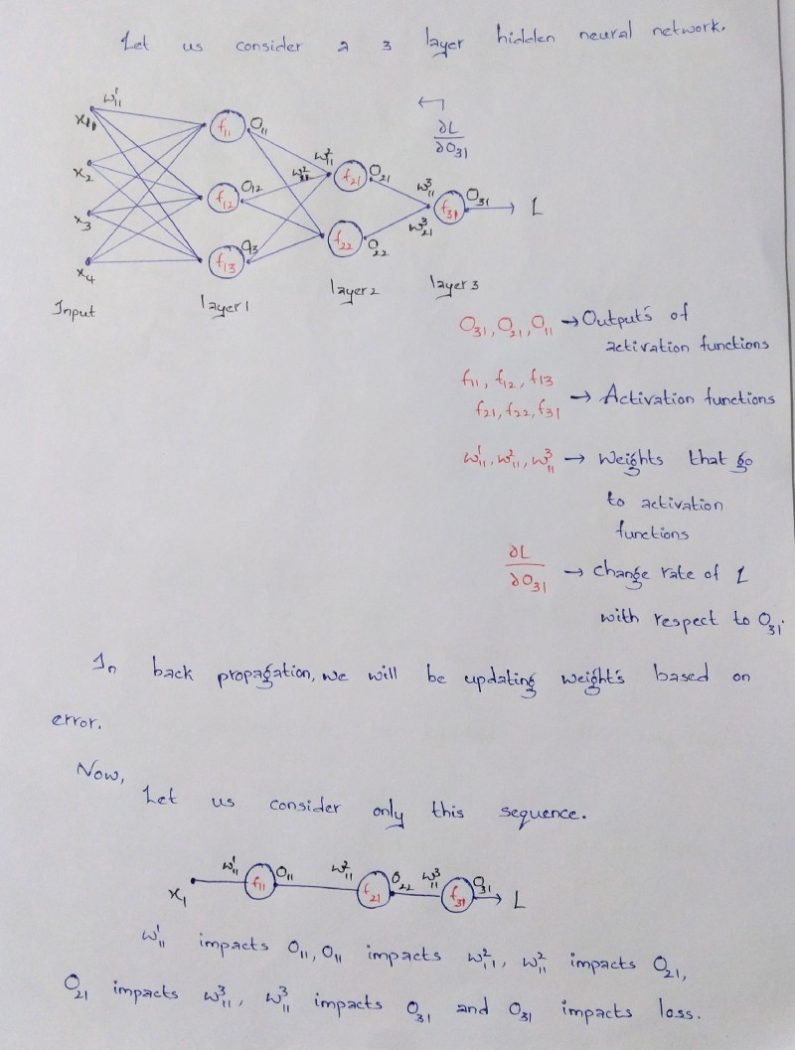 Let us consider a 3 layer hidden neural network.
w¹₁₁
x₁₁
x₂
x₃
x₄
Input
f₁₁ O₁₁
f₁₂ O₁₂
f₁₃
layer 1
w²₁₁
f₂₁ O₂₁
f₂₂ O₂₂
layer 2
←
∂L
∂O₃₁
w³₁₁
w³₂₁
f₃₁ O₃₁ → L
layer 3
O₃₁, O₂₁, O₁₁ → Output's of
activation functions
f₁₁, f₁₂, f₁₃
f₂₁, f₂₂, f₃₁ → Activation functions
w¹₁₁, w²₁₁, w³₁₁ → Weights that go
to activation
functions
∂L
∂O₃₁ → change rate of L
with respect to O₃₁.
In back propagation, we will be updating weight's based on
error.
Now,
Let us consider only this sequence.
x₁ w¹₁₁ f₁₁ O₁₁ w²₁₁ f₂₁ O₂₂ w³₁₁ f₃₁ O₃₁ → L
w¹₁₁ impacts O₁₁, O₁₁ impacts w²₁₁, w²₁₁ impacts O₂₁,
O₂₁ impacts w³₁₁, w³₁₁ impacts O₃₁ and O₃₁ impacts loss.